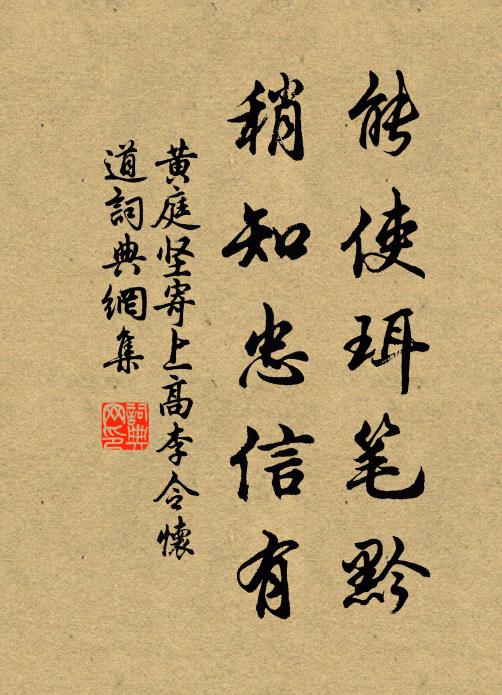 能使珥笔黔
稍知忠信有
黄庭坚寄上高李令懷
道詞典網集
詞典网印